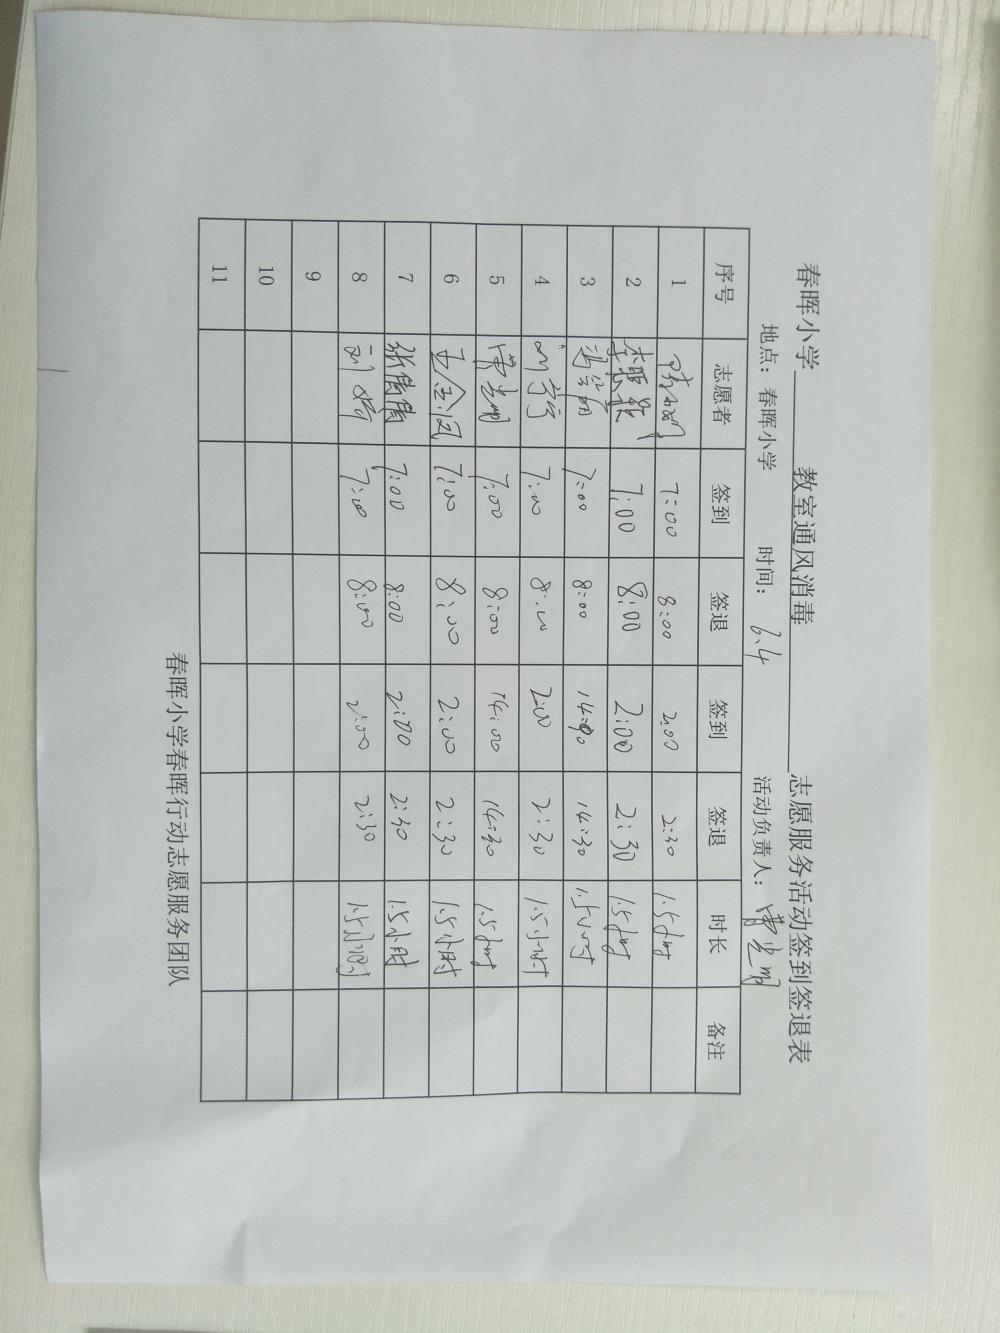 春晖小学 教室通风消毒 志愿服务活动签到签退表
地点：春晖小学 时间：6.4 活动负责人：
序号 志愿者 签到 签退 签到 签退 时长 备注
1 7:00 8:00 2:00 2:30 1.5小时
2 7:00 8:00 2:00 2:30 1.5小时
3 7:00 8:00 14:00 14:30 1.5小时
4 7:00 8:00 2:00 2:30 1.5小时
5 7:00 8:00 14:00 14:30 1.5小时
6 王金凤 7:00 8:00 2:00 2:30 1.5小时
7 张倩倩 7:00 8:00 2:00 2:30 1.5小时
8 7:00 8:00 2:00 2:30 1.5小时
9
10
11
春晖小学春晖行动志愿服务团队